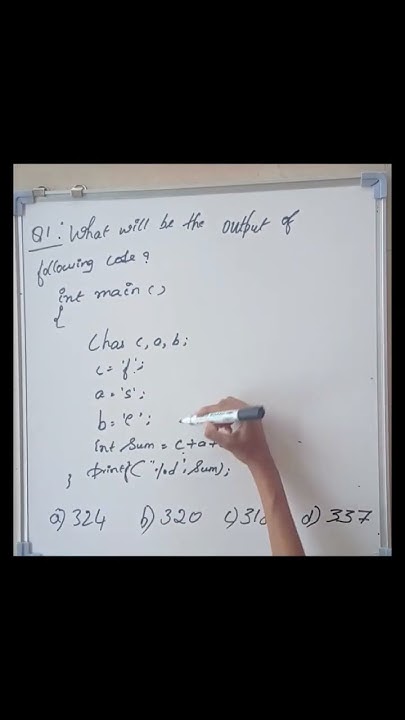 Q1: What will be the output of
following code?
int main()
{
Char c, a, b;
c = 'f';
a = 's';
b = 'e';
int Sum = c+a+
} printf("%d", Sum);
a) 324 b) 320 c) 31 d) 337